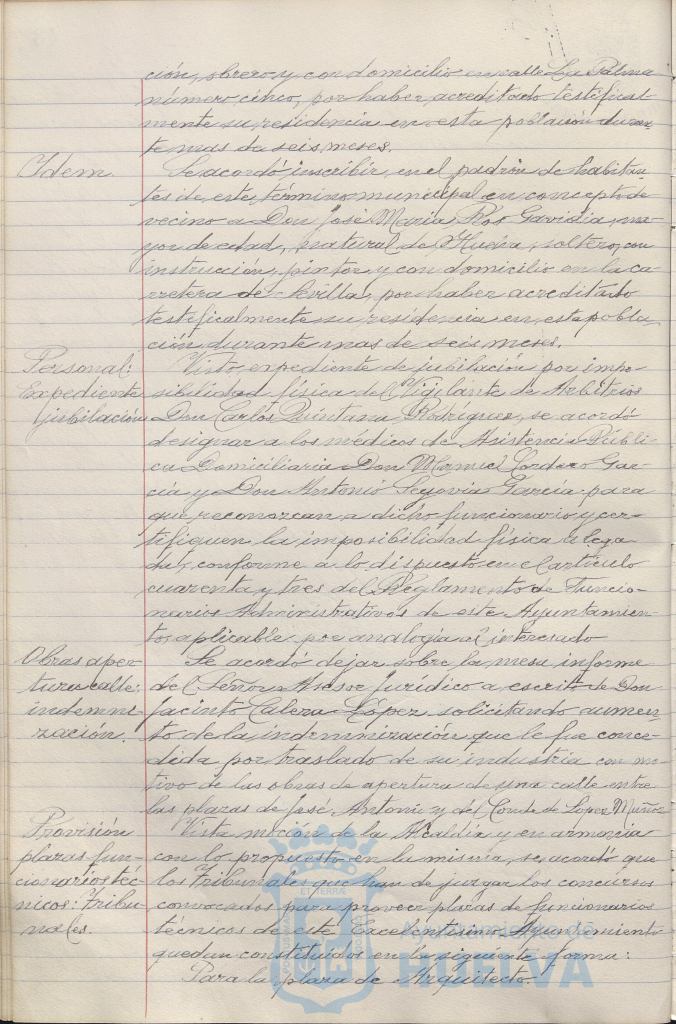 ción, obrero y con domicilio en calle La Palma
número cinco, por haber acreditado testifical-
mente su residencia en esta población duran-
te mas de seis meses.
Idem.
Se acordó inscribir en el padrón de habitan-
tes de este término municipal en concepto de
vecino a Don José Maria Ros Gavidia, ma-
yor de edad, natural de Huelva, soltero, con
instrucción, pintor y con domicilio en la ca-
rretera de Sevilla, por haber acreditado
testificalmente su residencia en esta pobla-
ción durante mas de seis meses.
Personal:
Expediente
jubilación
Visto expediente de jubilación por impo-
sibilidad física del Vigilante de Arbitrios
Don Carlos Quintana Rodriguez, se acordó
designar a los médicos de Asistencia Públi-
ca Domiciliaria Don Manuel Cordero Gar-
cía y Don Antonio Segovia García para
que reconozcan a dicho funcionario y cer-
tifiquen la imposibilidad física alega-
da, conforme a lo dispuesto en el artículo
cuarenta y tres del Reglamento de Funcio-
narios Administrativos de este Ayuntamien-
to aplicable por analogía al interesado
Obras aper-
tura calle:
indemni-
zación.
Se acordó dejar sobre la mesa informe
del Señor Asesor Jurídico a escrito de Don
Jacinto Calero López solicitando aumen-
to de la indemnización que le fue conce-
dida por traslado de su industria con mo-
tivo de las obras de apertura de una calle entre
las plazas de José Antonio y del Conde de López Muñoz
Provisión
plazas fun-
cionarios téc-
nicos: Tribu-
nales.
Vista moción de la Alcaldía y en armonia
con lo propuesto en la misma, se acordó que
los Tribunales que han de juzgar los concursos
convocados para proveer plazas de funcionarios
técnicos de este Excelentísimo Ayuntamiento
quedan constituidos en la siguiente forma:
Para la plaza de Arquitecto.
Ayuntamiento de
HUELVA